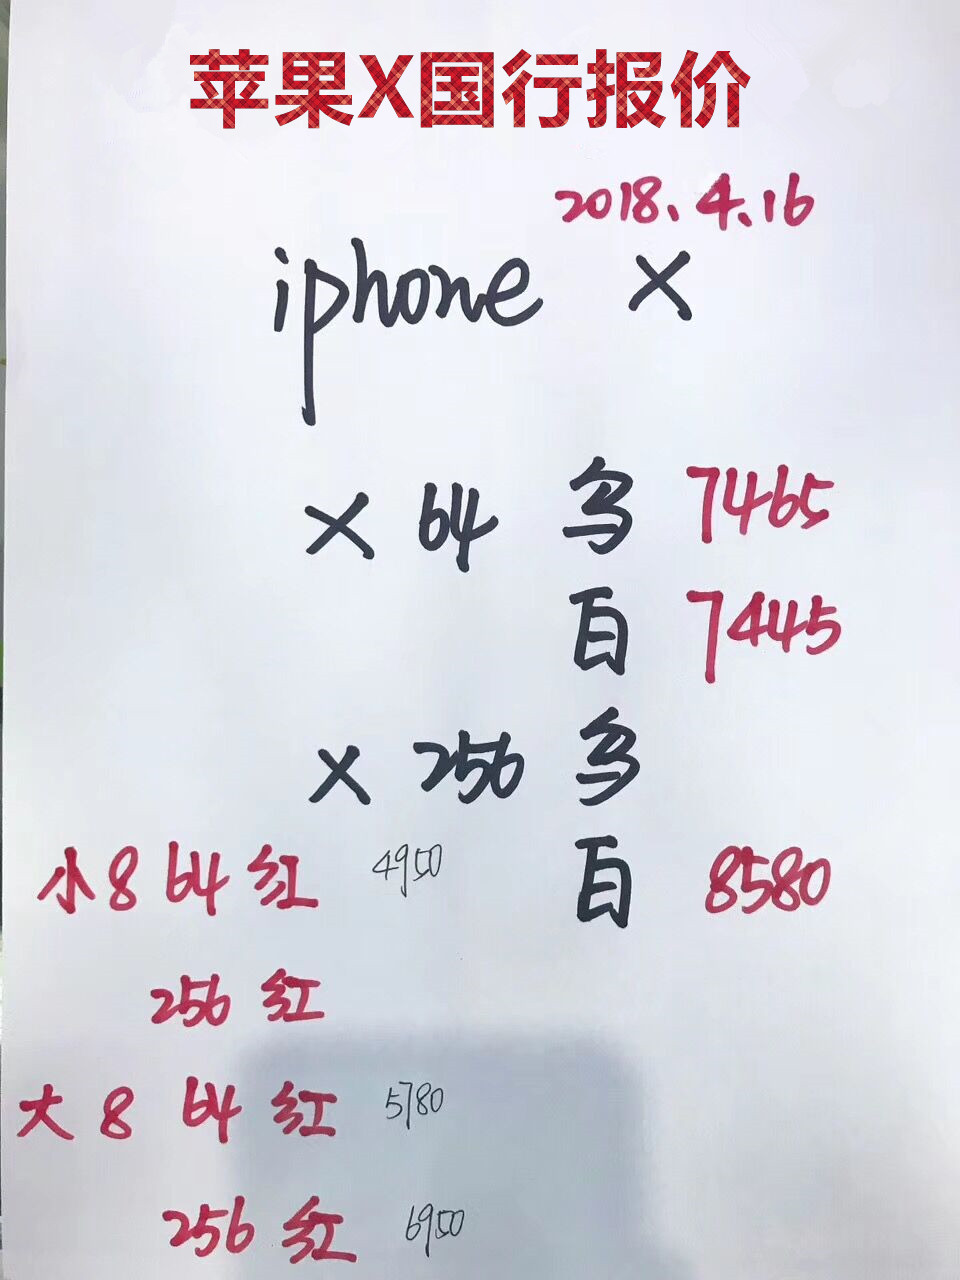 苹果X国行报价
2018.4.16
iphone X
X 64 多 7465
白 7445
X 256 多
小8 64 红 4950
白 8580
256 红
大8 64 红 5780
256 红 6950